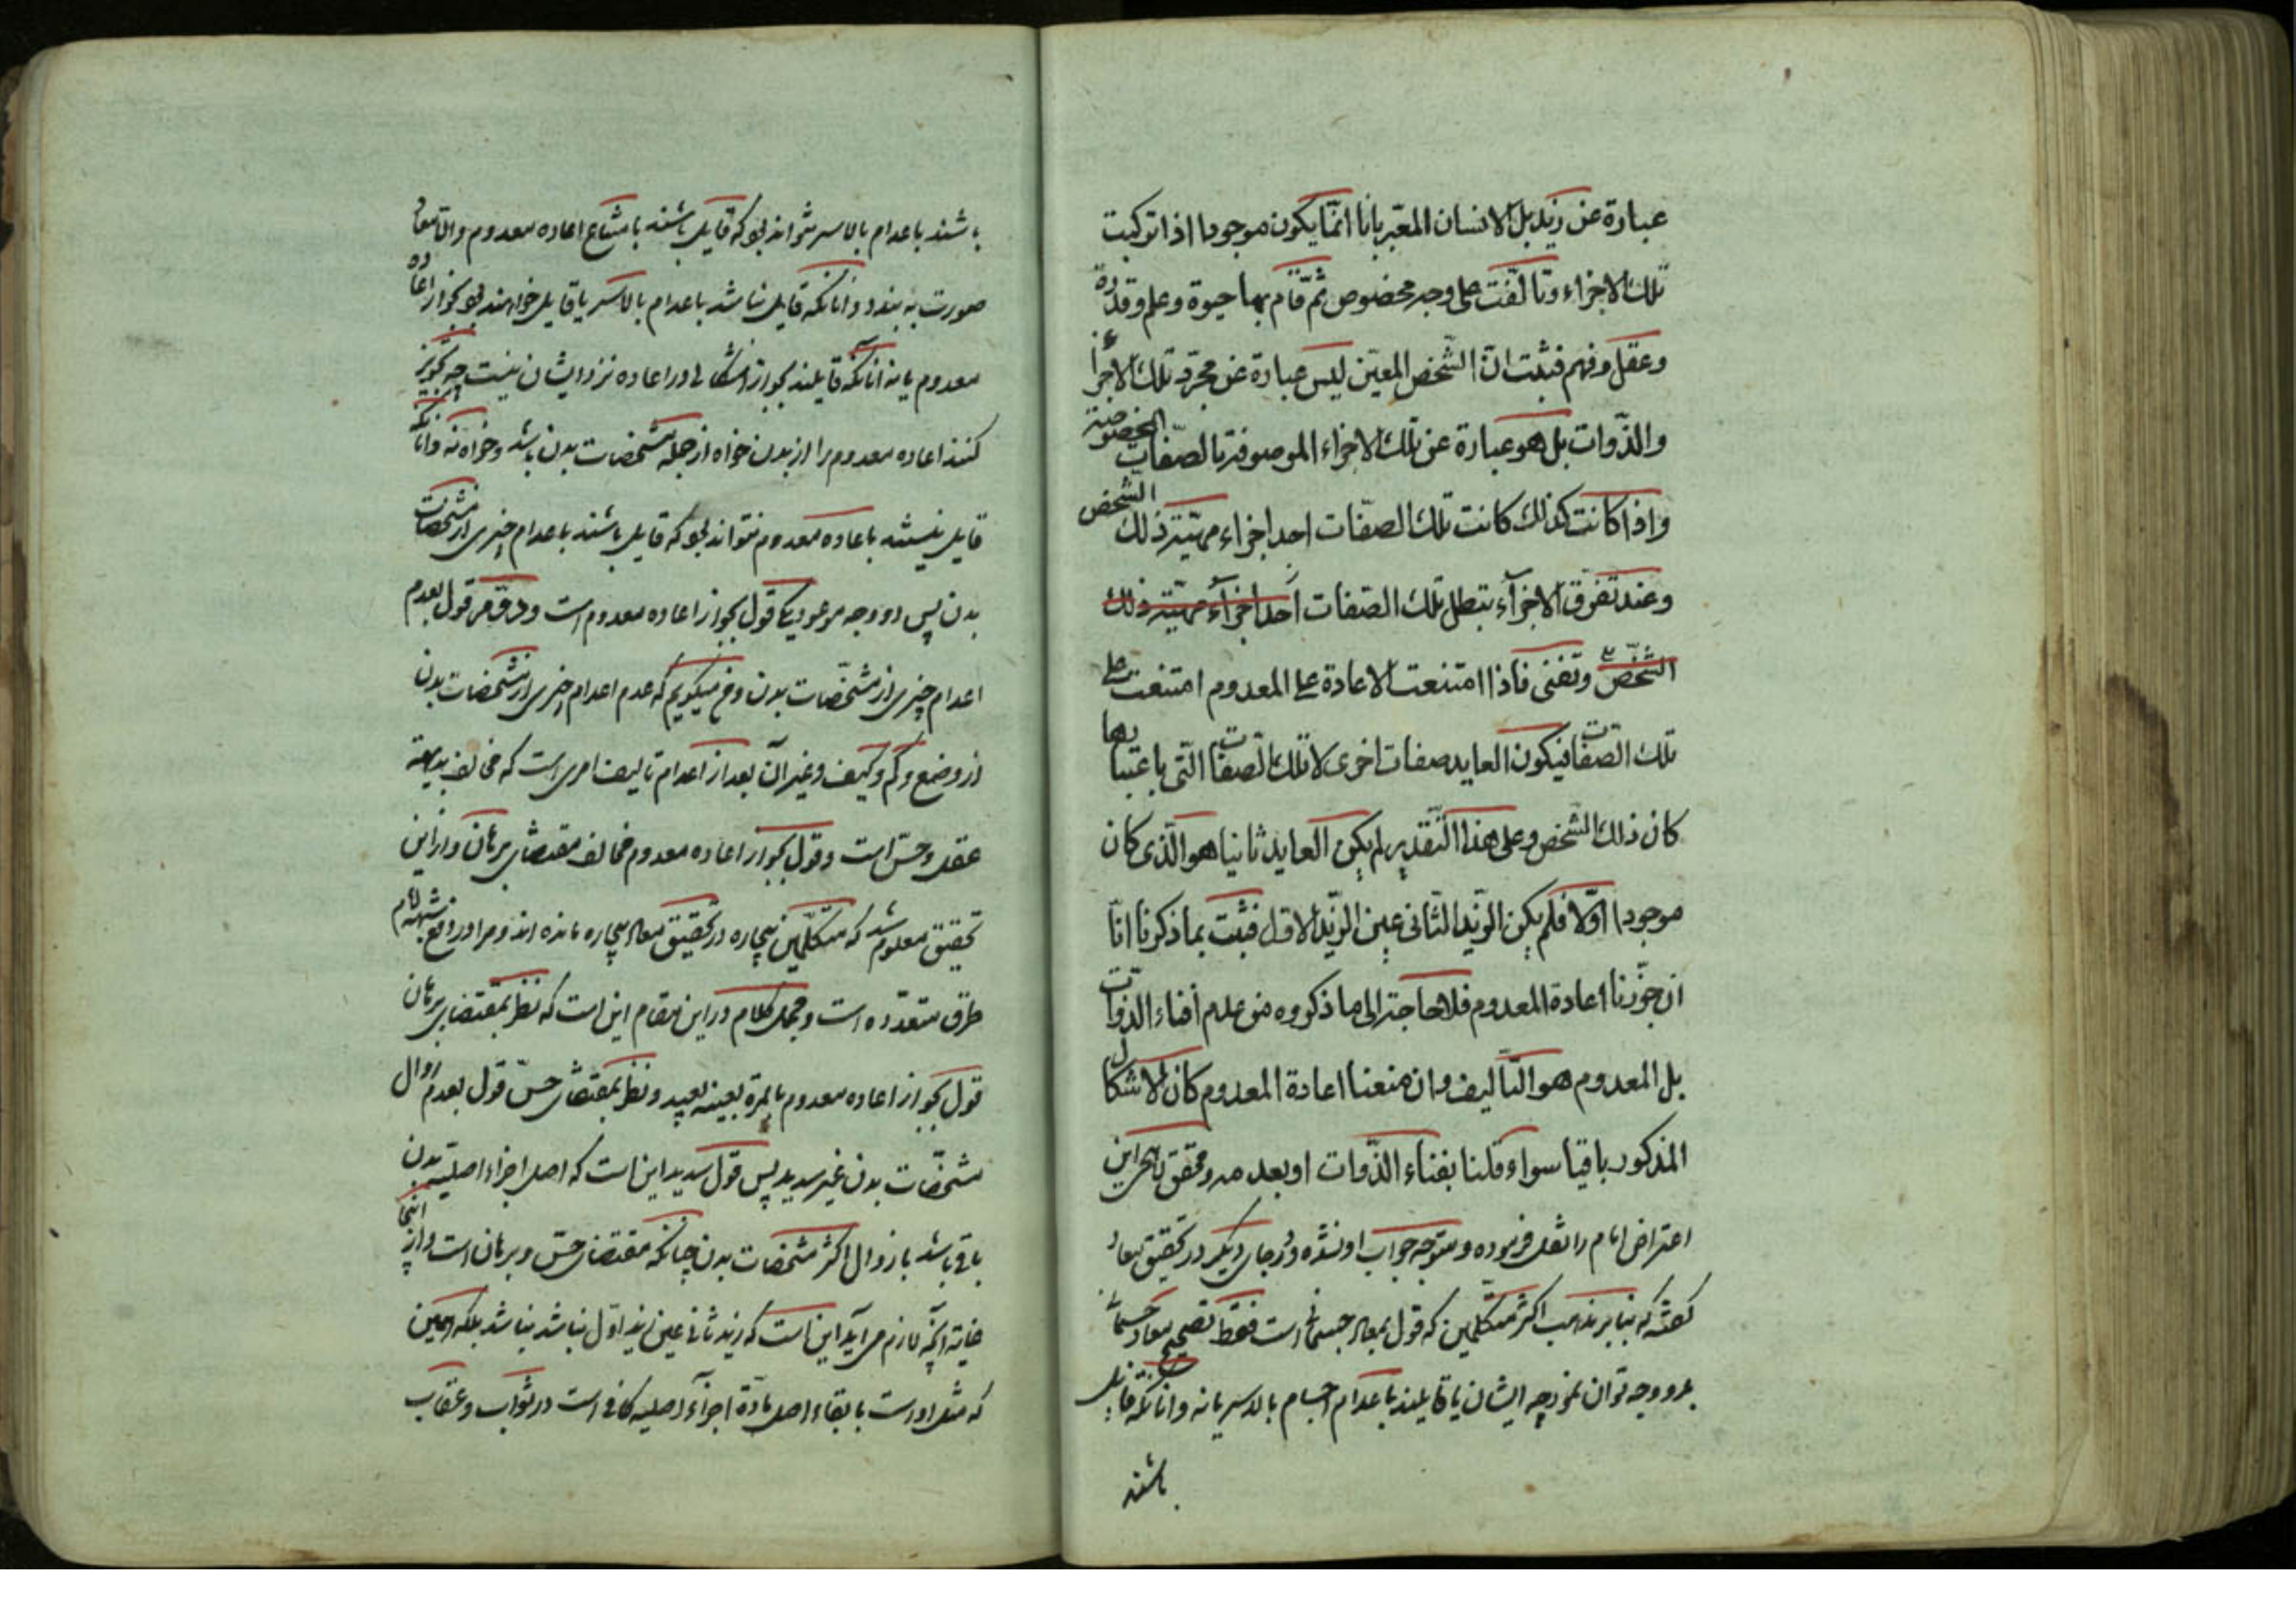 عبارة عن زيد بل الانسان المعبّر بانا انّما يكون موجودا اذا تركبت
تلك الاجزاء وتالّفت على وجه مخصوص ثمّ قام بها حيوة وعلم وقدرة
وعقل وفهم فثبت انّ الشّخص المعيّن ليس عبارة عن مجرّد تلك الاجزاء
والذّوات بل هو عبارة عن تلك الاجزاء الموصوفة بالصّفات المخصوصة
واذا كانت كذلك كانت تلك الصفات احد اجزاء مهيّة ذلك الشخص
وعند تفرّق الاجزآء بتطل تلك الصّفات احد اجزآء مهيّة ذلك
الشّخص وتفنى فاذا امتنعت الاعادة على المعدوم امتنعت على
تلك الصّفات فيكون العايد صفات اخرى لا تلك الصّفات الّتى باعتبارها
كان ذلك الشّخص وعلى هذا التّقدير لم يكن العايد ثانيا هو الّذى كان
موجودا اوّلا فلم يكن الزّيد الثّانى عين الزّيد الاوّل فثبت بما ذكرنا انّا
ان جوّزنا اعادة المعدوم فلا حاجة الى ما ذكروه من عدم افناء الذّوات
بل المعدوم هو التّاليف وان منعنا اعادة المعدوم كان الاشكال
المذكور باقيا سواء قلنا بفناء الذّوات او بعدمه ومحقق بحرانى
اعتراض امام را نقل فرموده و متوجه جواب او نشده و در جاى ديگر در تحقيق معاد
گفته كه بنا بر مذهب اكثر متكلّمين كه قول بمعاد جسمانى است فقط تصحيح معاد جسمانى
بدو وجه توان نمود چه ايشان يا قايلند باعدام اجسام بالاسر يا نه و آنانكه قايل
باشند
باشند باعدام بالاسر نتواند بود كه قايل باشند بامتناع اعاده معدوم والّا معاد
صورت نه بندد و آنانكه قايل نباشند باعدام بالاسر يا قايل خواهند بود بجواز اعاده
معدوم يا نه آنانكه قايلند بجواز اشكالى در اعاده نزد ايشان نيست چه تجويز
كنند اعاده معدوم را از بدن خواه از جمله مشخصات بدن باشد و خواه نه و آنانكه
قايل نيستند باعاده معدوم نتواند بود كه قايل باشند باعدام چيزى از مشخصات
بدن پس دو وجه موعود يكى قول بجواز اعاده معدوم است و دوّم قول بعدم
اعدام چيزى از مشخّصات بدن و ح ميگويم كه عدم اعدام چيزى از مشخّصات بدن
از وضع و كم و كيف و غير آن بعد از اعدام تاليف امرى است كه مخالف بديهه
عقل و حسّ است و قول بجواز اعاده معدوم مخالف مقتضاى برهان و از اين
تحقيق معلوم شد كه متكلّمين بيچاره در تحقيق معاد بيچاره مانده اند و مرا در دفع شبهه امام
طرق متعدّده است و مجمل كلام در اين مقام اين است كه نظر بمقتضاى برهان
قول بجواز اعاده معدوم بالمرة بعينه بعيد و نظر بمقتضاى حسّ قول بعدم زوال
مشخّصات بدن غير سديد پس قول سديد اين است كه اصل اجزاء اصليه بدن
باقى باشد با زوال اكثر مشخصات بدن چنانكه مقتضاى حسّ و برهان است و از اينجا
غاية آنچه لازم مى آيد اين است كه زيد ثانى عين زيد اوّل نباشد نباشد بلكه همين
كه مثل اوست با بقاء اصل مادّة اجزآء اصليه كافى است در ثواب و عقاب